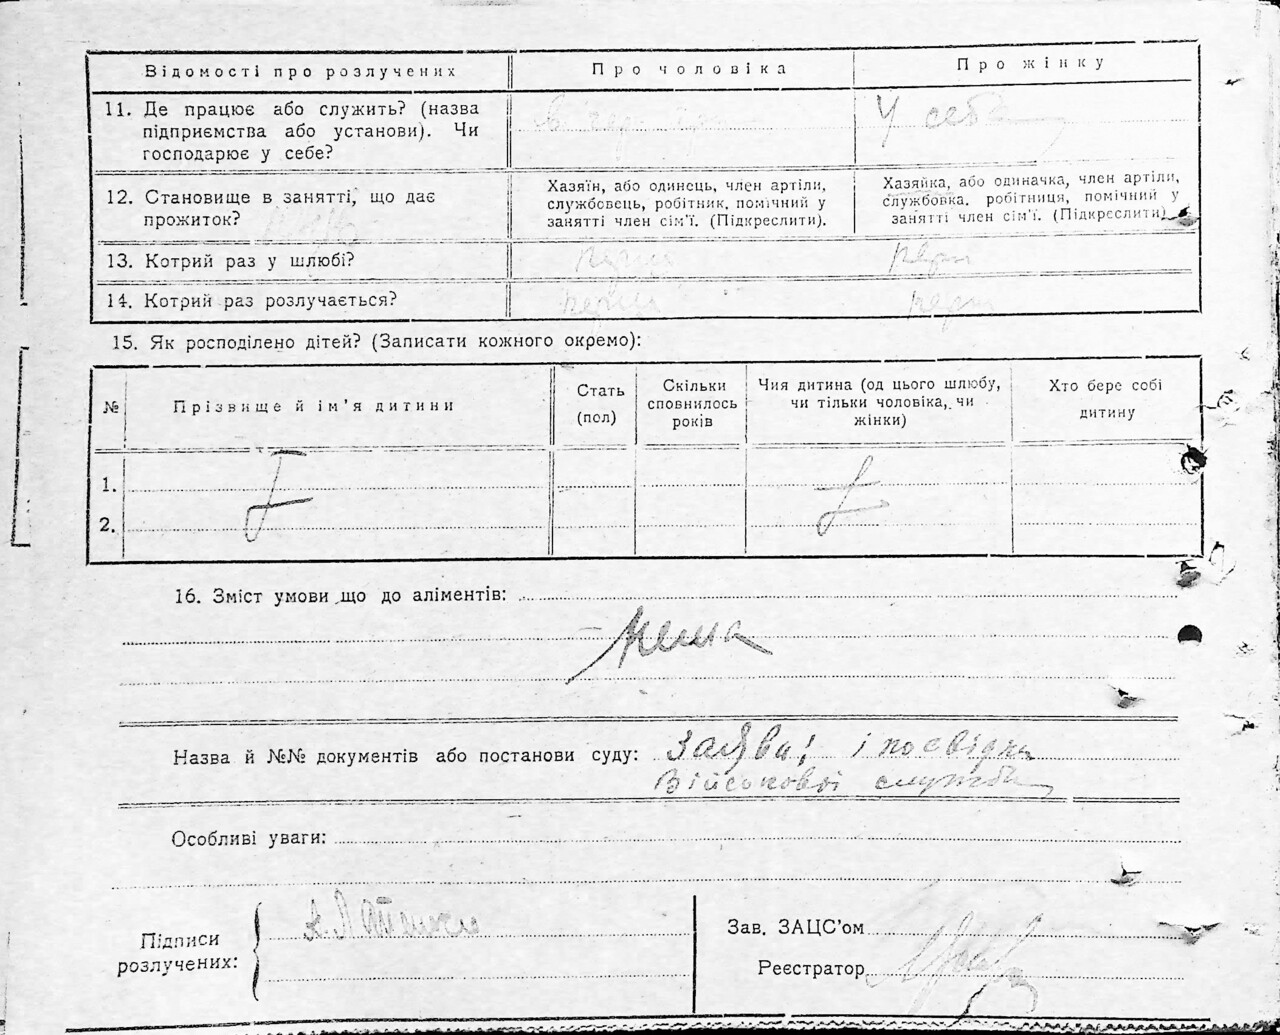 Відомості про розлучених
Про чоловіка
Про жінку
11. Де працює або служить? (назва
підприємства або установи). Чи
господарює у себе?
У себе
12. Становище в занятті, що дає
прожиток?
Хазяїн, або одинець, член артіли,
службовець, робітник, помічний у
занятті член сім'ї. (Підкреслити).
Хазяйка, або одиначка, член артіли,
службовка. робітниця, помічний у
занятті член сім'ї. (Підкреслити)
13. Котрий раз у шлюбі?
14. Котрий раз розлучається?
15. Як росподілено дітей? (Записати кожного окремо):
№
Прізвище й ім'я дитини
Стать
(пол)
Скільки
сповнилось
років
Чия дитина (од цього шлюбу,
чи тільки чоловіка, чи
жінки)
Хто бере собі
дитину
1.
2.
16. Зміст умови що до аліментів:
Нема
Назва й №№ документів або постанови суду: Заяви і посвідки
Військової служби
Особливі уваги:
Підписи
розлучених:
Зав. ЗАЦС'ом
Реєстратор